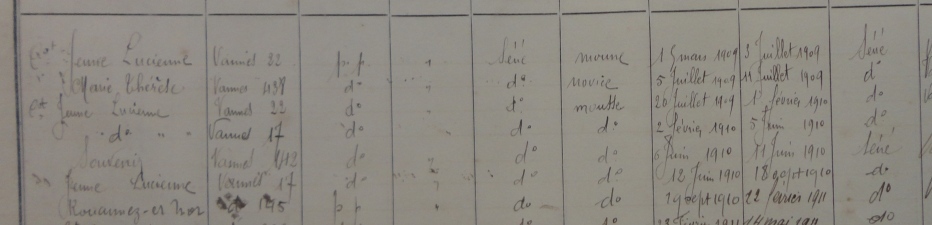 Jeune Lucienne Vannes 32 p.p. " Séné mousse 15 mars 1909 3 Juillet 1909 Séné
Marie Thérèse Vannes 438 d° " d° novice 5 Juillet 1909 11 Juillet 1909 d°
Jeune Lucienne Vannes 22 d° " d° mousse 20 Juillet 1909 1 février 1910 d°
" d° " " Vannes 17 d° " d° d° 2 février 1910 5 Juin 1910 d°
Souvenir Vannes 412 d° " d° d° 6 Juin 1910 11 Juin 1910 Séné
" Jeune Lucienne Vannes 17 d° " d° d° 12 Juin 1910 18 sept 1910 d°
d° 145 p.p. " d° d° 19 sept 1910 22 février 1911 d°
d° 1911 14 mai 1911 d°